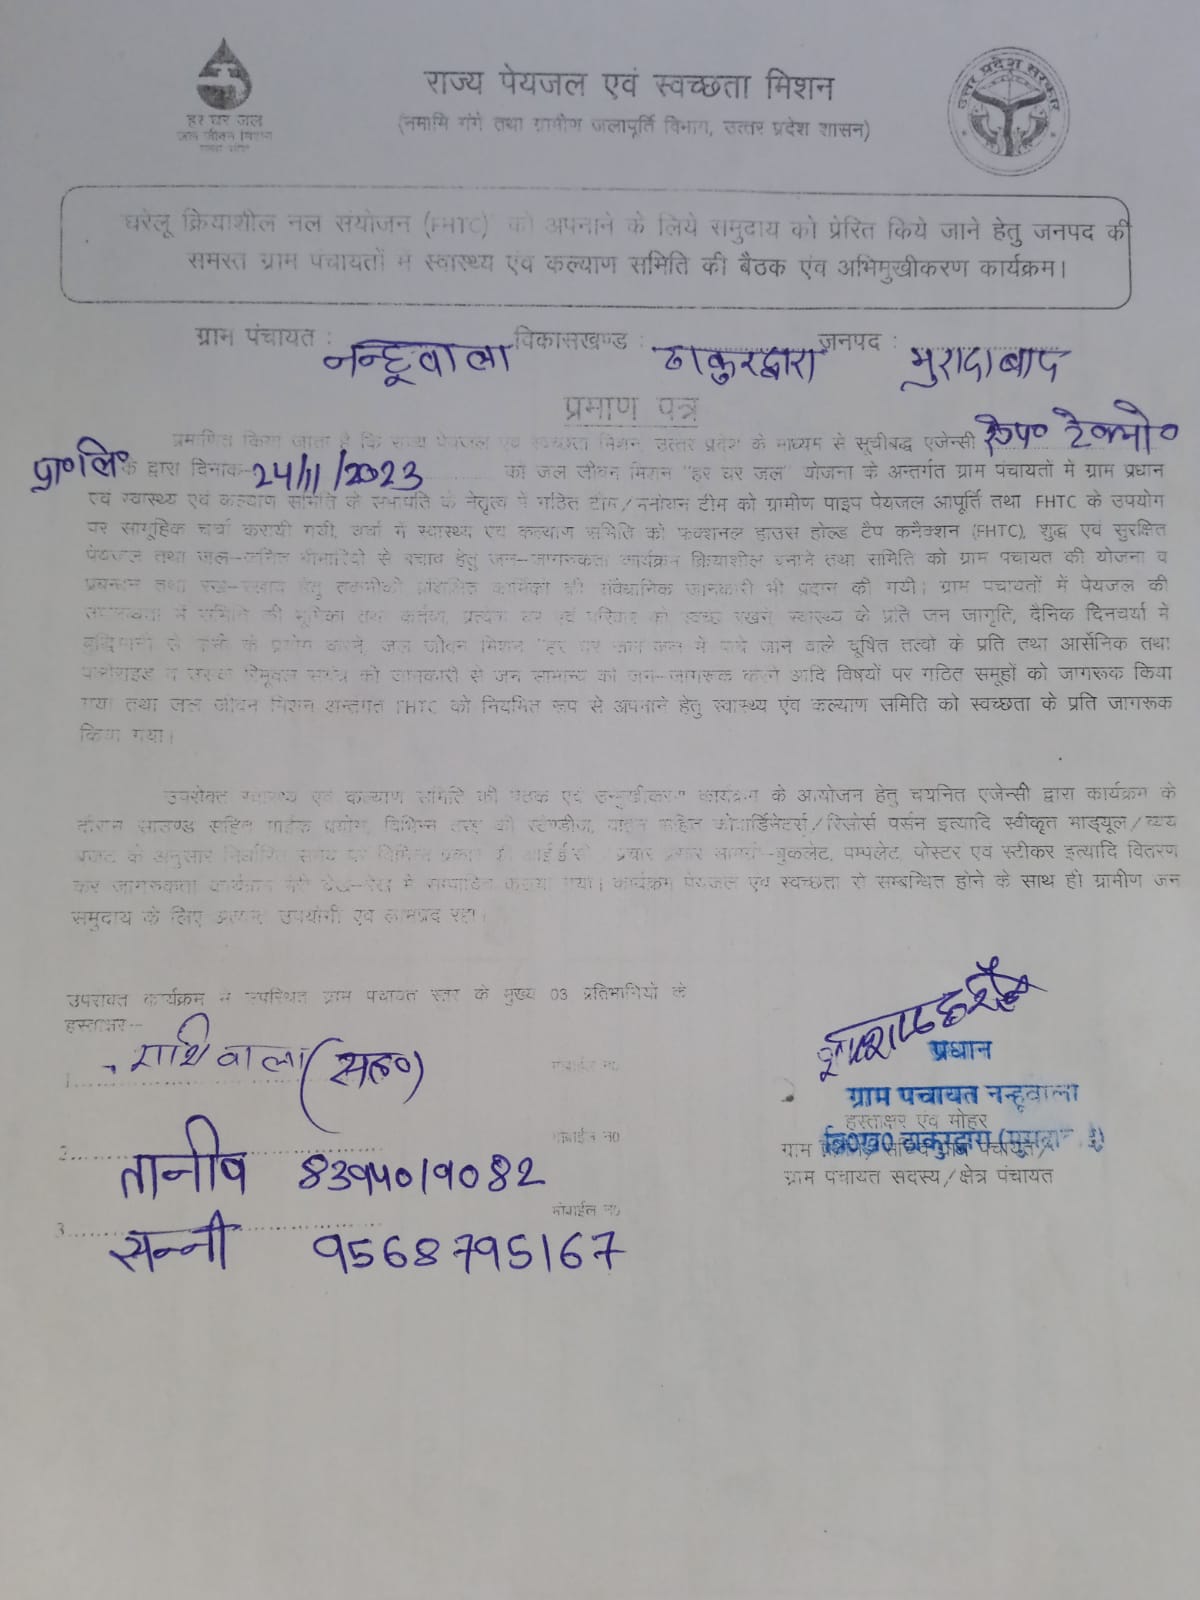 हर घर जल
जल जीवन मिशन
उत्तर प्रदेश सरकार
राज्य पेयजल एवं स्वच्छता मिशन
(नमामि गंगे तथा ग्रामीण जलापूर्ति विभाग, उत्तर प्रदेश शासन)
घरेलू क्रियाशील नल संयोजन (FHTC) को अपनाने के लिये समुदाय को प्रेरित किये जाने हेतु जनपद की
समस्त ग्राम पंचायतों में स्वास्थ्य एंव कल्याण समिति की बैठक एंव अभिमुखीकरण कार्यक्रम।
ग्राम पंचायत : नन्हूवाला विकासखण्ड : ठाकुरद्वारा जनपद : मुरादाबाद
प्रमाण पत्र
प्रमाणित किया जाता है कि राज्य पेयजल एवं स्वच्छता मिशन, उत्तर प्रदेश के माध्यम से सूचीबद्ध एजेन्सी टेक्नो०
प्रा०लि० के द्वारा दिनांक-24/11/2023 को जल जीवन मिशन "हर घर जल" योजना के अन्तर्गत ग्राम पंचायतों में ग्राम प्रधान
एवं स्वास्थ्य एवं कल्याण समिति के सभापति के नेतृत्व में गठित टीम/मनोनयन टीम को ग्रामीण पाइप पेयजल आपूर्ति तथा FHTC के उपयोग
पर सामूहिक चर्चा करायी गयी, चर्चा में स्वास्थ्य एवं कल्याण समिति को फंक्शनल हाउस होल्ड टैप कनैक्शन (FHTC), शुद्ध एवं सुरक्षित
पेयजल तथा जल-जनित बीमारियों से बचाव हेतु जन-जागरूकता कार्यक्रम क्रियाशील बनाने तथा समिति को ग्राम पंचायत की योजना व
प्रबन्धन तथा रख-रखाव हेतु तकनीकी प्रशिक्षित कार्मिकों की संवैधानिक जानकारी भी प्रदान की गयी। ग्राम पंचायतों में पेयजल की
उपलब्धता में समिति की भूमिका तथा कर्तव्य, प्रत्येक घर एवं परिवार को स्वच्छ रखने, स्वास्थ्य के प्रति जन जागृति, दैनिक दिनचर्या में
बुद्धिमानी से पानी के प्रयोग करने, जल जीवन मिशन "हर घर जल" जल में पाये जाने वाले दूषित तत्वों के प्रति तथा आर्सेनिक तथा
फ्लोराइड व उसके रिमूवल संयंत्र की जानकारी से जन सामान्य को जन-जागरूक करने आदि विषयों पर गठित समूहों को जागरूक किया
गया तथा जल जीवन मिशन अन्तर्गत FHTC को नियमित रूप से अपनाने हेतु स्वास्थ्य एंव कल्याण समिति को स्वच्छता के प्रति जागरूक
किया गया।
उपरोक्त स्वास्थ्य एवं कल्याण समिति की बैठक एवं उन्मुखीकरण कार्यक्रम के आयोजन हेतु चयनित एजेन्सी द्वारा कार्यक्रम के
दौरान साउण्ड सहित माईक प्रयोग, विभिन्न तरह की स्टैण्डीज, वाहन सहित कोआर्डिनेटर्स/रिसोर्स पर्सन इत्यादि स्वीकृत माड्यूल/व्यय
बजट के अनुसार निर्धारित समय पर विभिन्न प्रकार की आई.ई.सी. प्रचार प्रसार सामग्री-बुकलेट, पम्पलेट, पोस्टर एवं स्टीकर इत्यादि वितरण
कर जागरूकता कार्यक्रम मेरी देख-रेख में सम्पादित कराया गया। कार्यक्रम पेयजल एवं स्वच्छता से सम्बन्धित होने के साथ ही ग्रामीण जन
समुदाय के लिए अत्यन्त उपयोगी एवं लाभप्रद रहा।
उपरोक्त कार्यक्रम में उपस्थित ग्राम पंचायत स्तर के मुख्य 03 प्रतिभागियों के
हस्ताक्षर:-
1. वाला मोबाईल नं0
2. तानीष मोबाईल नं0 8394019082
3. सन्नी मोबाईल नं0 9568795167
प्रधान
ग्राम पंचायत नन्हूवाला
हस्ताक्षर एंव मोहर
वि०ख० ठाकुरद्वारा
ग्राम पंचायत सदस्य/क्षेत्र पंचायत